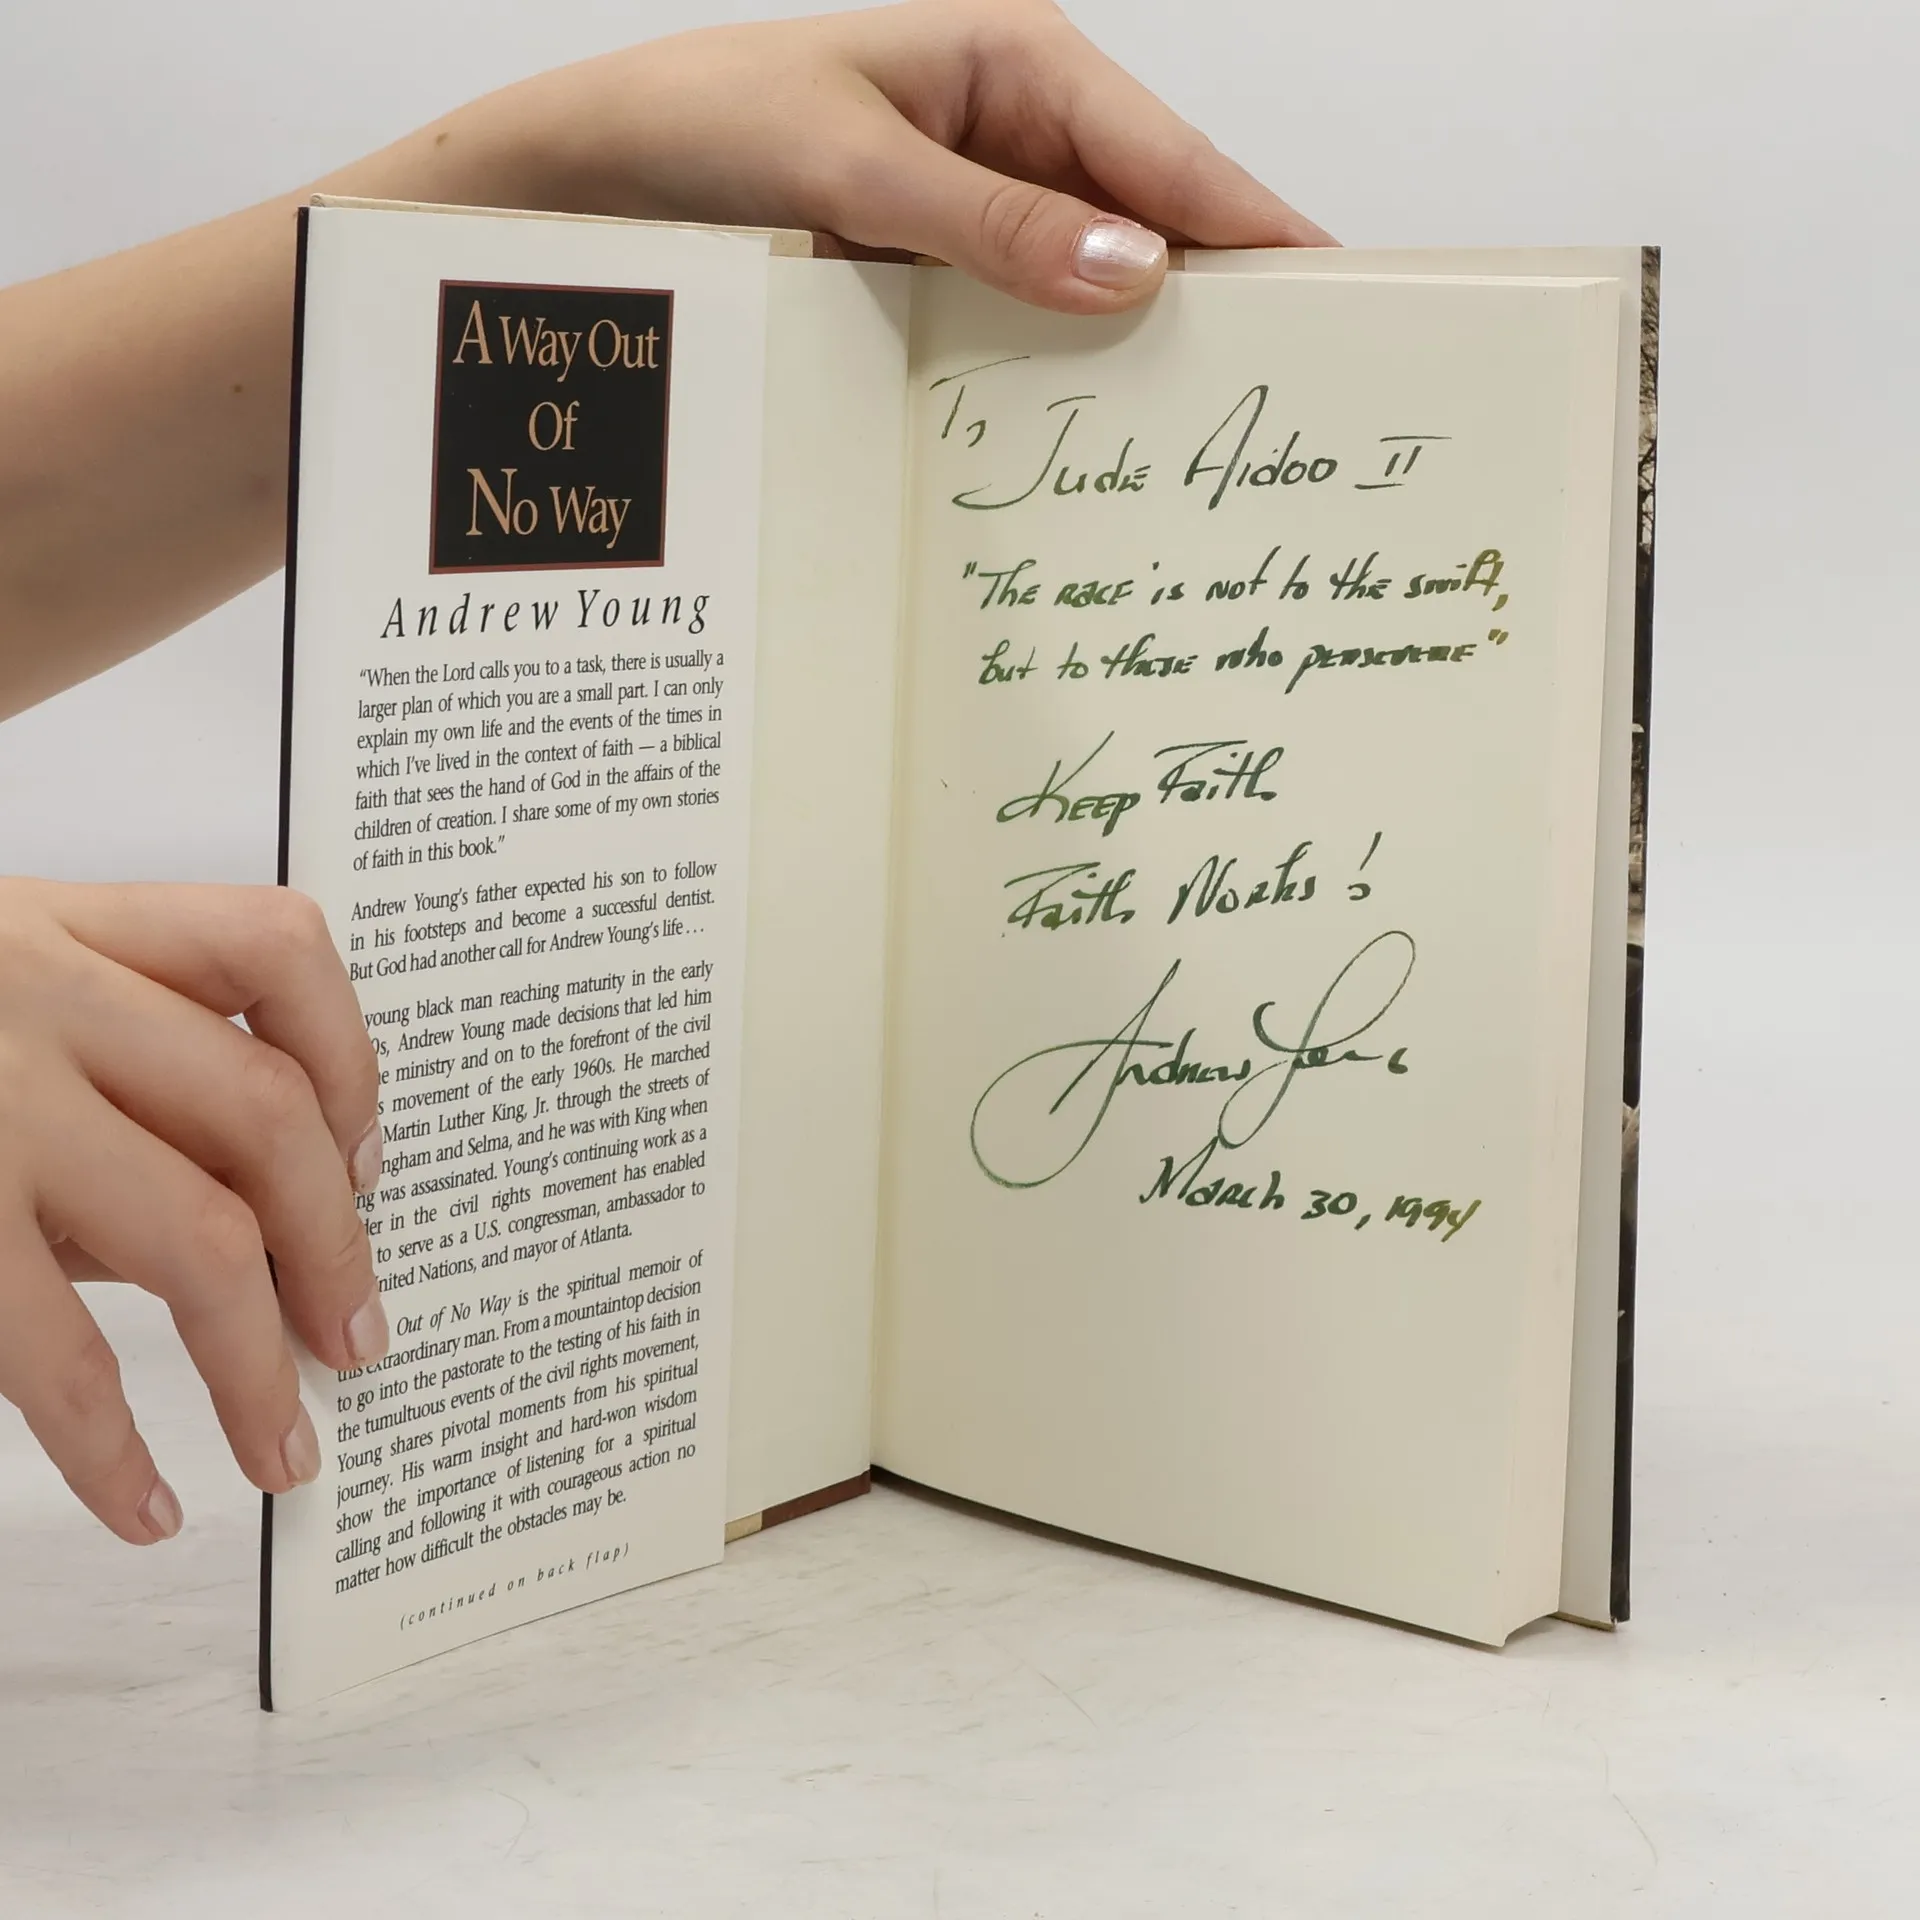 A Way Out
Of
No Way
Andrew Young
“When the Lord calls you to a task, there is usually a
larger plan of which you are a small part. I can only
explain my own life and the events of the times in
which I've lived in the context of faith — a biblical
faith that sees the hand of God in the affairs of the
children of creation. I share some of my own stories
of faith in this book.”
Andrew Young's father expected his son to follow
in his footsteps and become a successful dentist.
But God had another call for Andrew Young's life...
young black man reaching maturity in the early
0s, Andrew Young made decisions that led him
e ministry and on to the forefront of the civil
s movement of the early 1960s. He marched
Martin Luther King, Jr. through the streets of
ngham and Selma, and he was with King when
ing was assassinated. Young's continuing work as a
der in the civil rights movement has enabled
to serve as a U.S. congressman, ambassador to
nited Nations, and mayor of Atlanta.
Out of No Way is the spiritual memoir of
this extraordinary man. From a mountaintop decision
to go into the pastorate to the testing of his faith in
the tumultuous events of the civil rights movement,
Young shares pivotal moments from his spiritual
journey. His warm insight and hard-won wisdom
show the importance of listening for a spiritual
calling and following it with courageous action no
matter how difficult the obstacles may be.
(continued on back flap)
To
Jude Aidoo II
"The race is not to the swift,
but to those who persevere"
Keep Faith
Faith Works!
Andrew Young
March 30, 1994